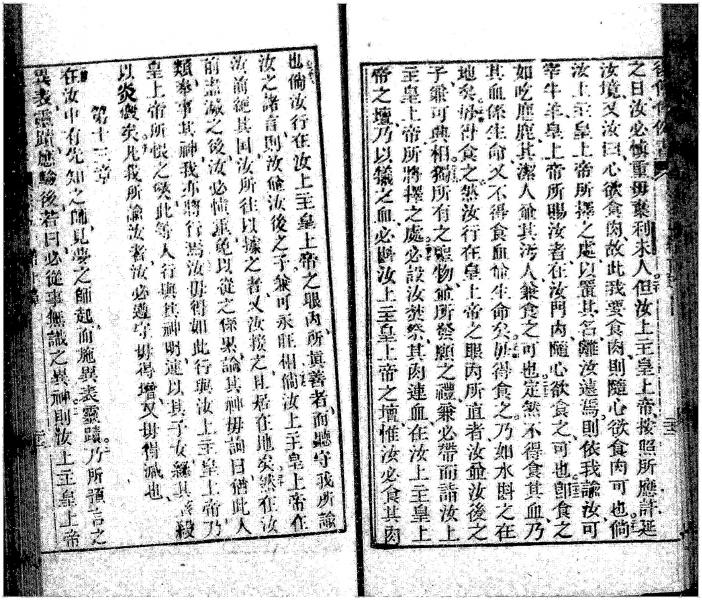 之日汝必慎重毋棄利未人但汝上主皇上帝按照所應許延
汝境又汝曰心欲食肉故此我要食肉則隨心欲食肉可也倘
汝上主皇上帝所擇之處以置其名離汝遠焉則依我諭汝可
宰牛羊皇上帝所賜汝者在汝門內隨心欲食之可也卽食之
如吃麈鹿其潔人並其污人兼食之可也定然不得食其血乃
其血係生命又不得食肉並生命矣毋得食之乃如水斟之在
地矣毋得食之然汝行在皇上帝之眼內所直者汝並汝後之
子兼可興相獨所有之聖物並所發願之禮兼必帶而詣汝上
主皇上帝所將擇之處必設汝焚祭其肉連血在汝上主皇上
帝之壇乃以犧之血必斟汝上主皇上帝之壇惟汝必食其肉
也倘汝行在汝上主皇上帝之眼內所眞善者而聽守我所諭
汝之諸言則汝並汝後之子兼可永旺相倘汝上主皇上帝在
汝前絕其國汝所往以據之者又汝接之且居在地矣然在汝
前盡滅之後汝必慎重免以從之係累論其神毋詢曰僑此人
類奉事其神我亦將行焉汝毋得如此行與汝上主皇上帝乃
皇上帝所恨之獘此等人行與其神明連以其子女爲其 殺
以炎燬矣凡我所諭汝者汝必遵守毋得增又毋得減也
第十三章
在汝中有先知之師見夢之師起而施異表靈蹟乃所預言之
異表靈蹟應驗後若曰必從事無識之異神則汝上主皇上帝